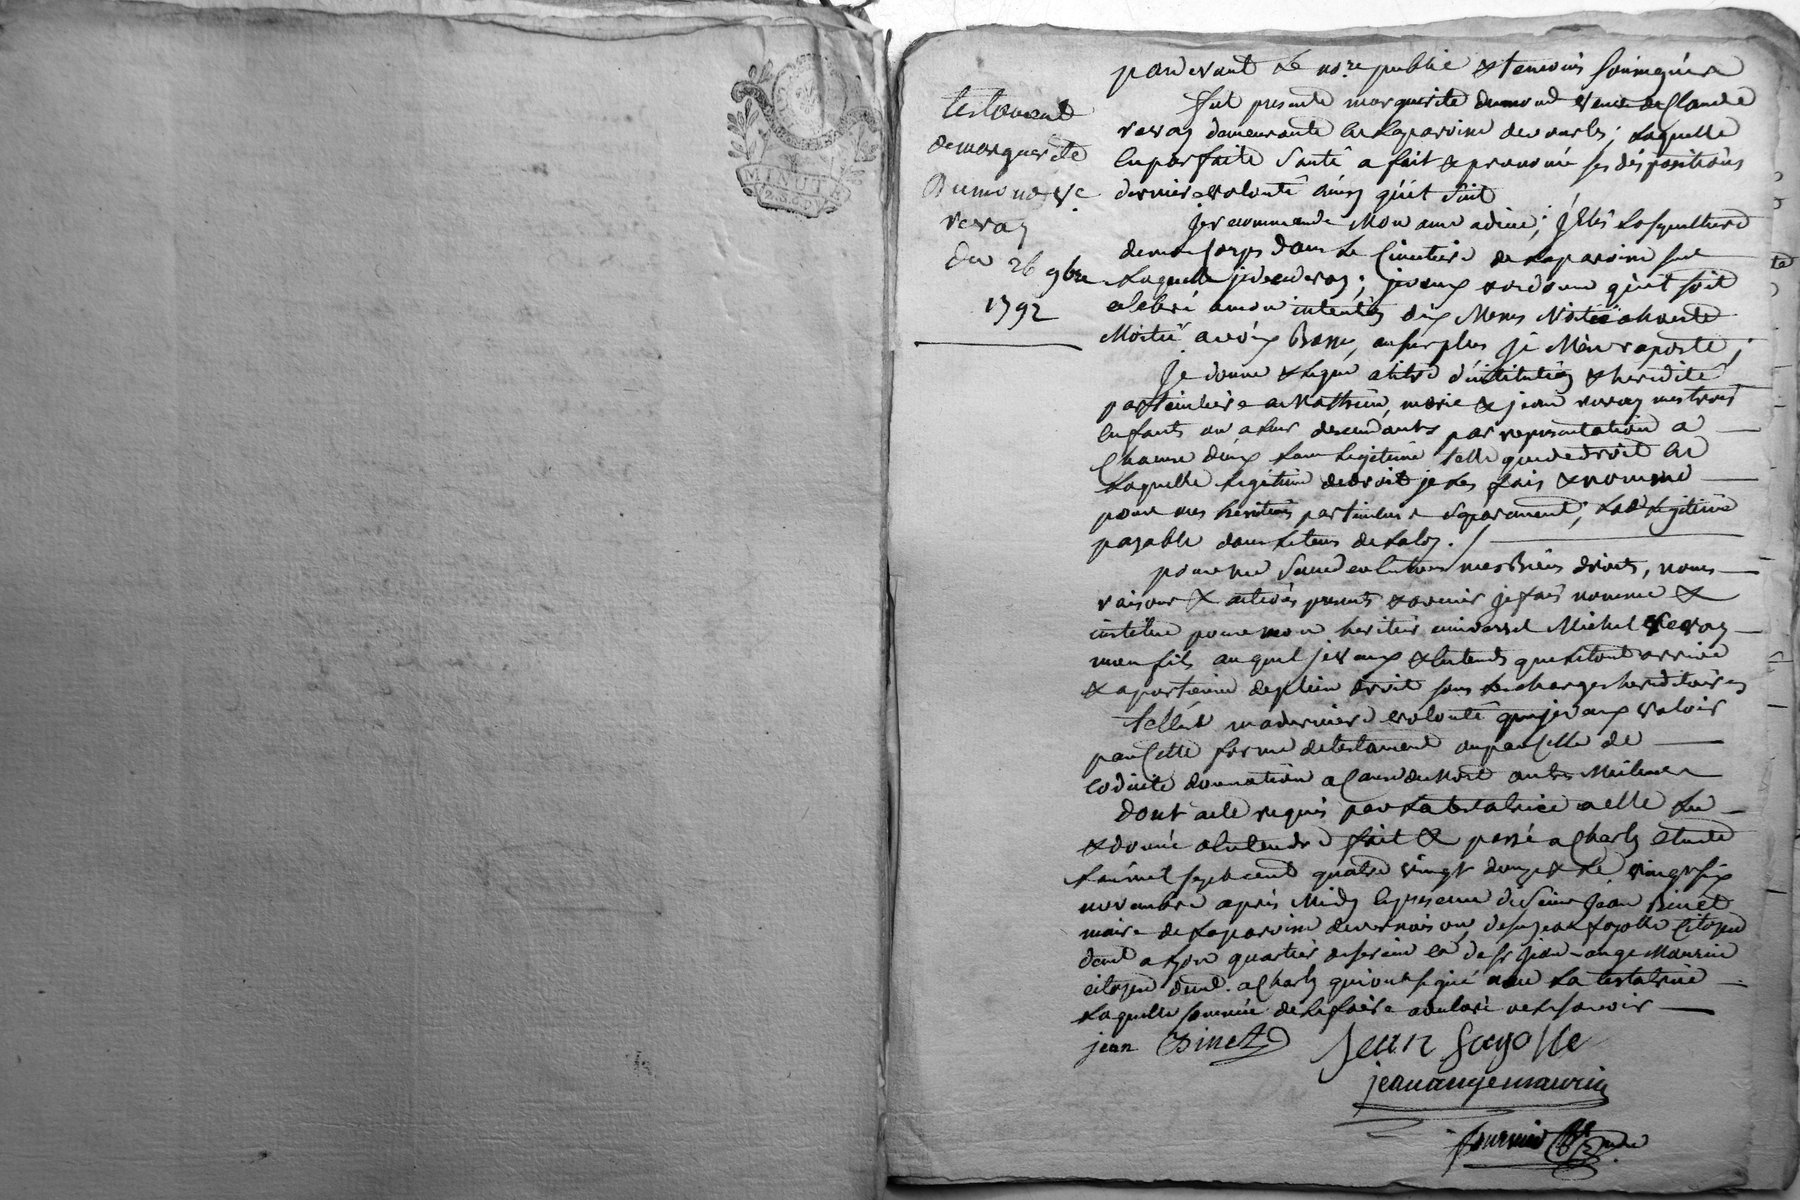 MINUTE
testament
de marguerite
Dumond ve
veray
du 26 9bre
1792
par devant le nore public & temoins soussignés
fut presente marguerite dumond veuve de Claude
veray demeurante en la paroisse de ; laquelle
en parfaite santé a fait & prononcé ses dispositions
derniere volonté ainsy qu'il suit
je recommande mon ame a dieu ; j'Elis la sepulture
de mon Corps dans le Cimetiere de la paroisse sur
laquelle je decederay ; je veux & ordonne qu'il soit
celebré a mon intention dix Messes Moitié a haute
Moitié a voix Basse, au surplus je M'en raporte ;
Je donne & legue a titre d'institution & heredité
particuliere a Mathieu, marie & jean veray mes trois
enfants ou a leur descendants par representation a
Chacun d'eux leur legitime telle que de droit en
laquelle legitime de droit je les fais & nomme
pour mes heritiers particuliers & separement ; lade legitime
payable dans le tems de la loy. /
pour me succeder en tous mes Biens droits, noms
raisons & actions presents & avenir je fais nomme &
institue pour mon heritier universel Michel Veray
mon fils auquel je veux & entends que le tout arrive
& apartienne de plein droit sous les charges hereditaires
telle est ma derniere volonté que je veux valoir
par Cette forme de testament ou par Celle de
codicile donnation a Cause de Mort ou tres Meilleure
dont acte requis par la testatrice a elle lu
& donné a entendre fait & passé a Charly etude
l'an mil sept cent quatre vingt douze & le vingt six
novembre après Midy en presence de Sieur Jean Binet
maire de la paroisse de vernaison, de sr jean fayolle Citoyen
demt a quartier & de sr jean-ange Maurin
citoyen demt. a Charly qui ont signé non la testatrice
laquelle sommée de le faire a declaré ne le savoir
jean Binet
Jean fayolle
jean ange maurin
fournier